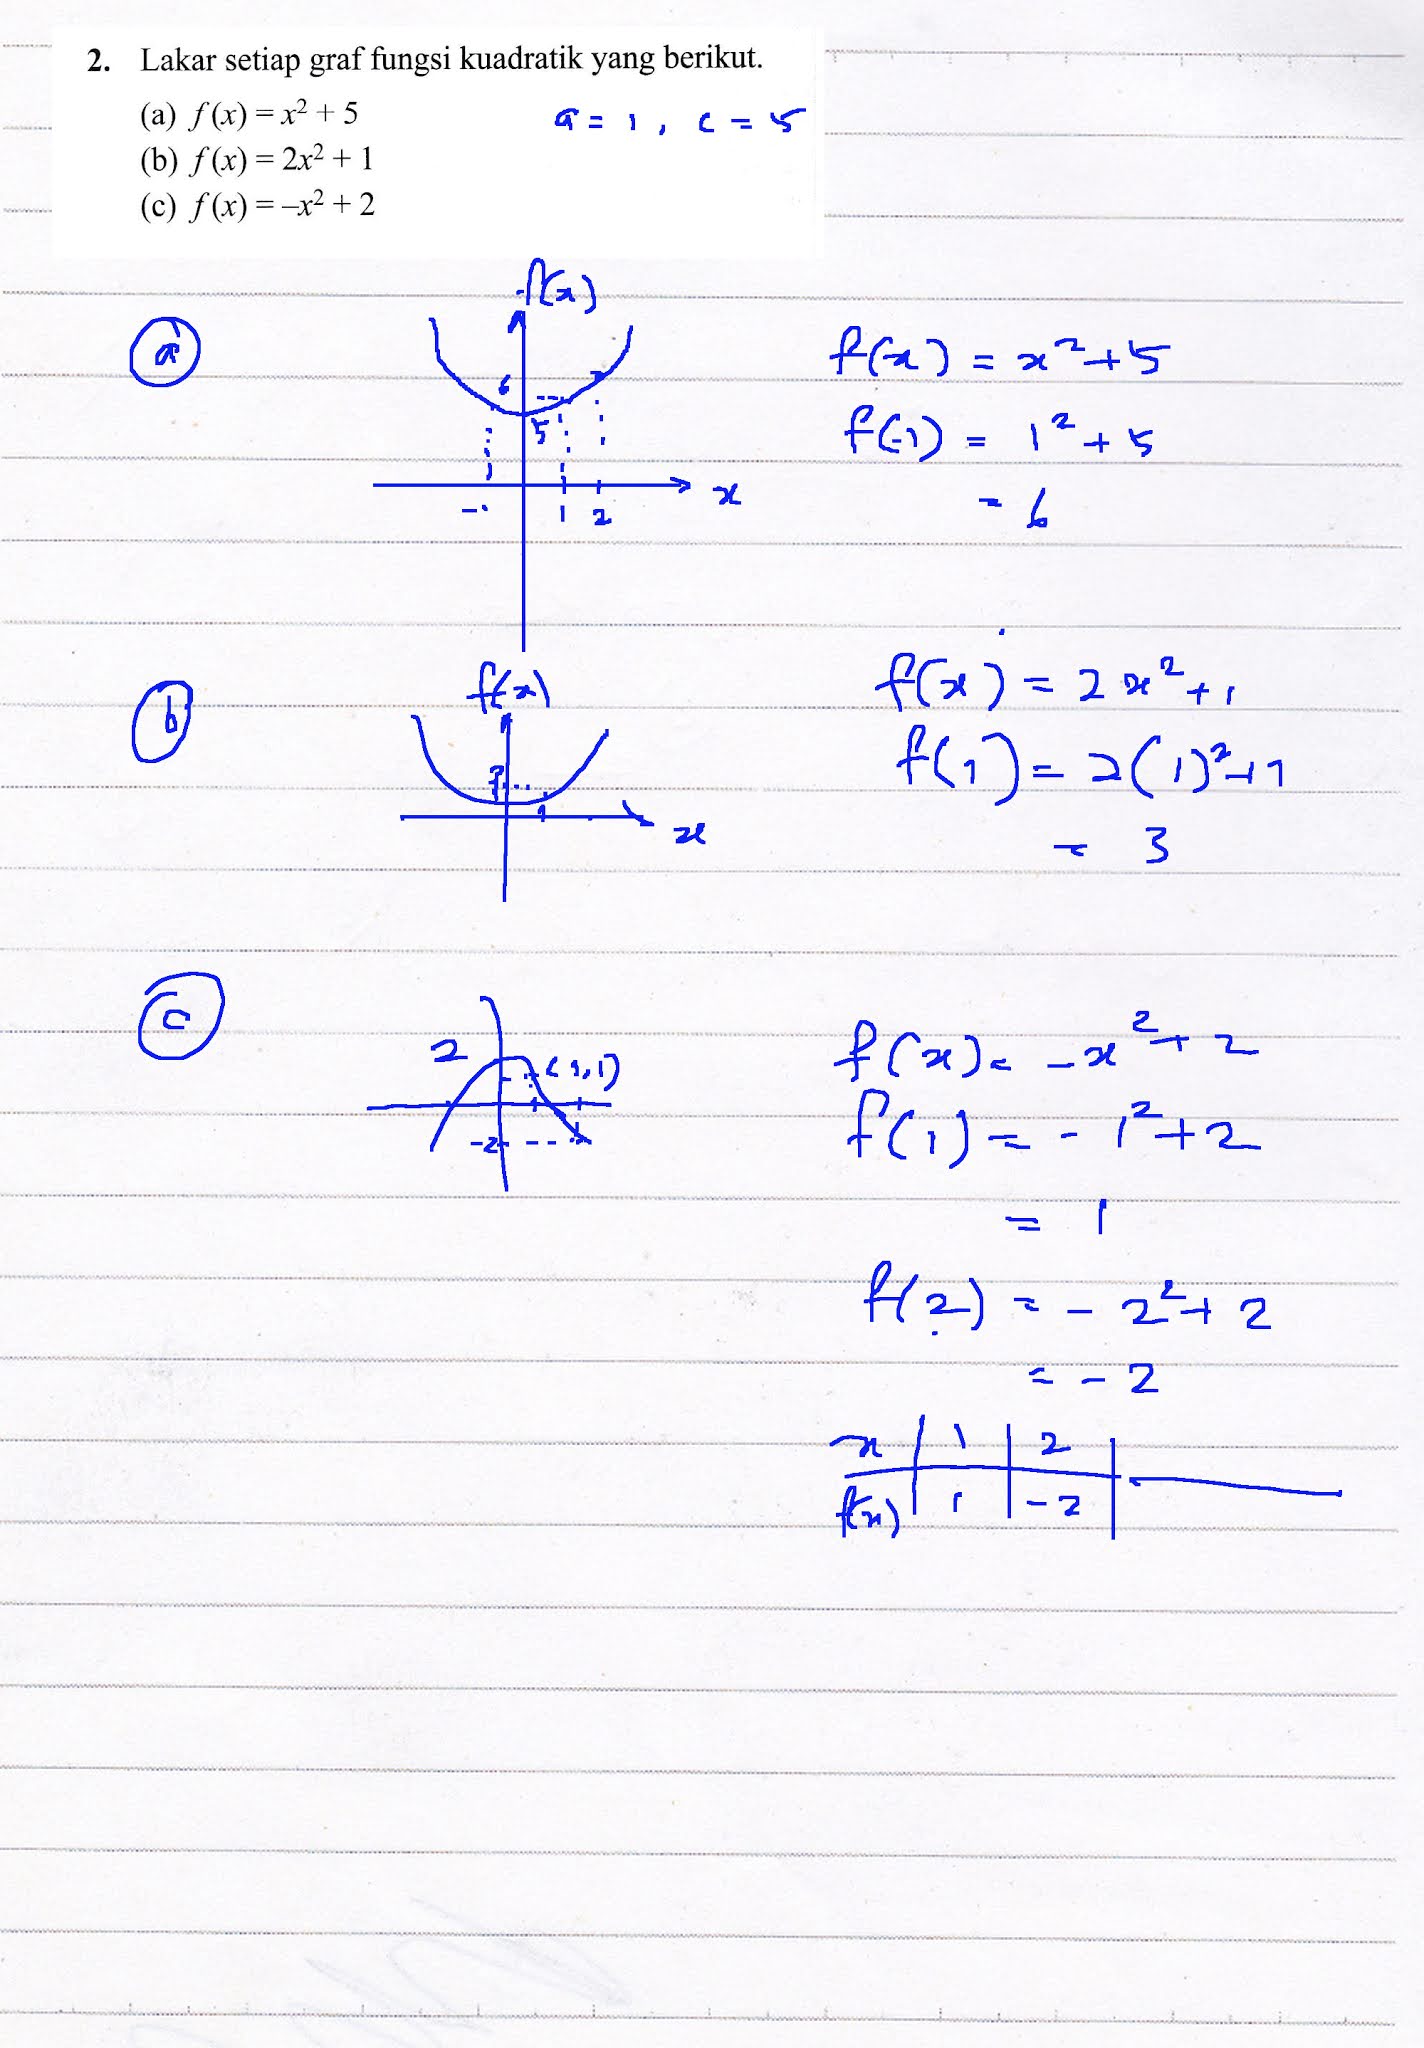 2. Lakar setiap graf fungsi kuadratik yang berikut.
(a) f(x) = x² + 5
a = 1, c = 5
(b) f(x) = 2x² + 1
(c) f(x) = –x² + 2
a
f(x)
6
5
-1
1 2
x
f(x) = x² + 5
f(-1) = 1² + 5
= 6
b
f(x)
3
1
x
f(x) = 2x² + 1
f(1) = 2(1)² + 1
= 3
c
2
(1,1)
-2
f(x) = -x² + 2
f(1) = -1² + 2
= 1
f(2) = -2² + 2
= -2
x 1 2
f(x) 1 -2